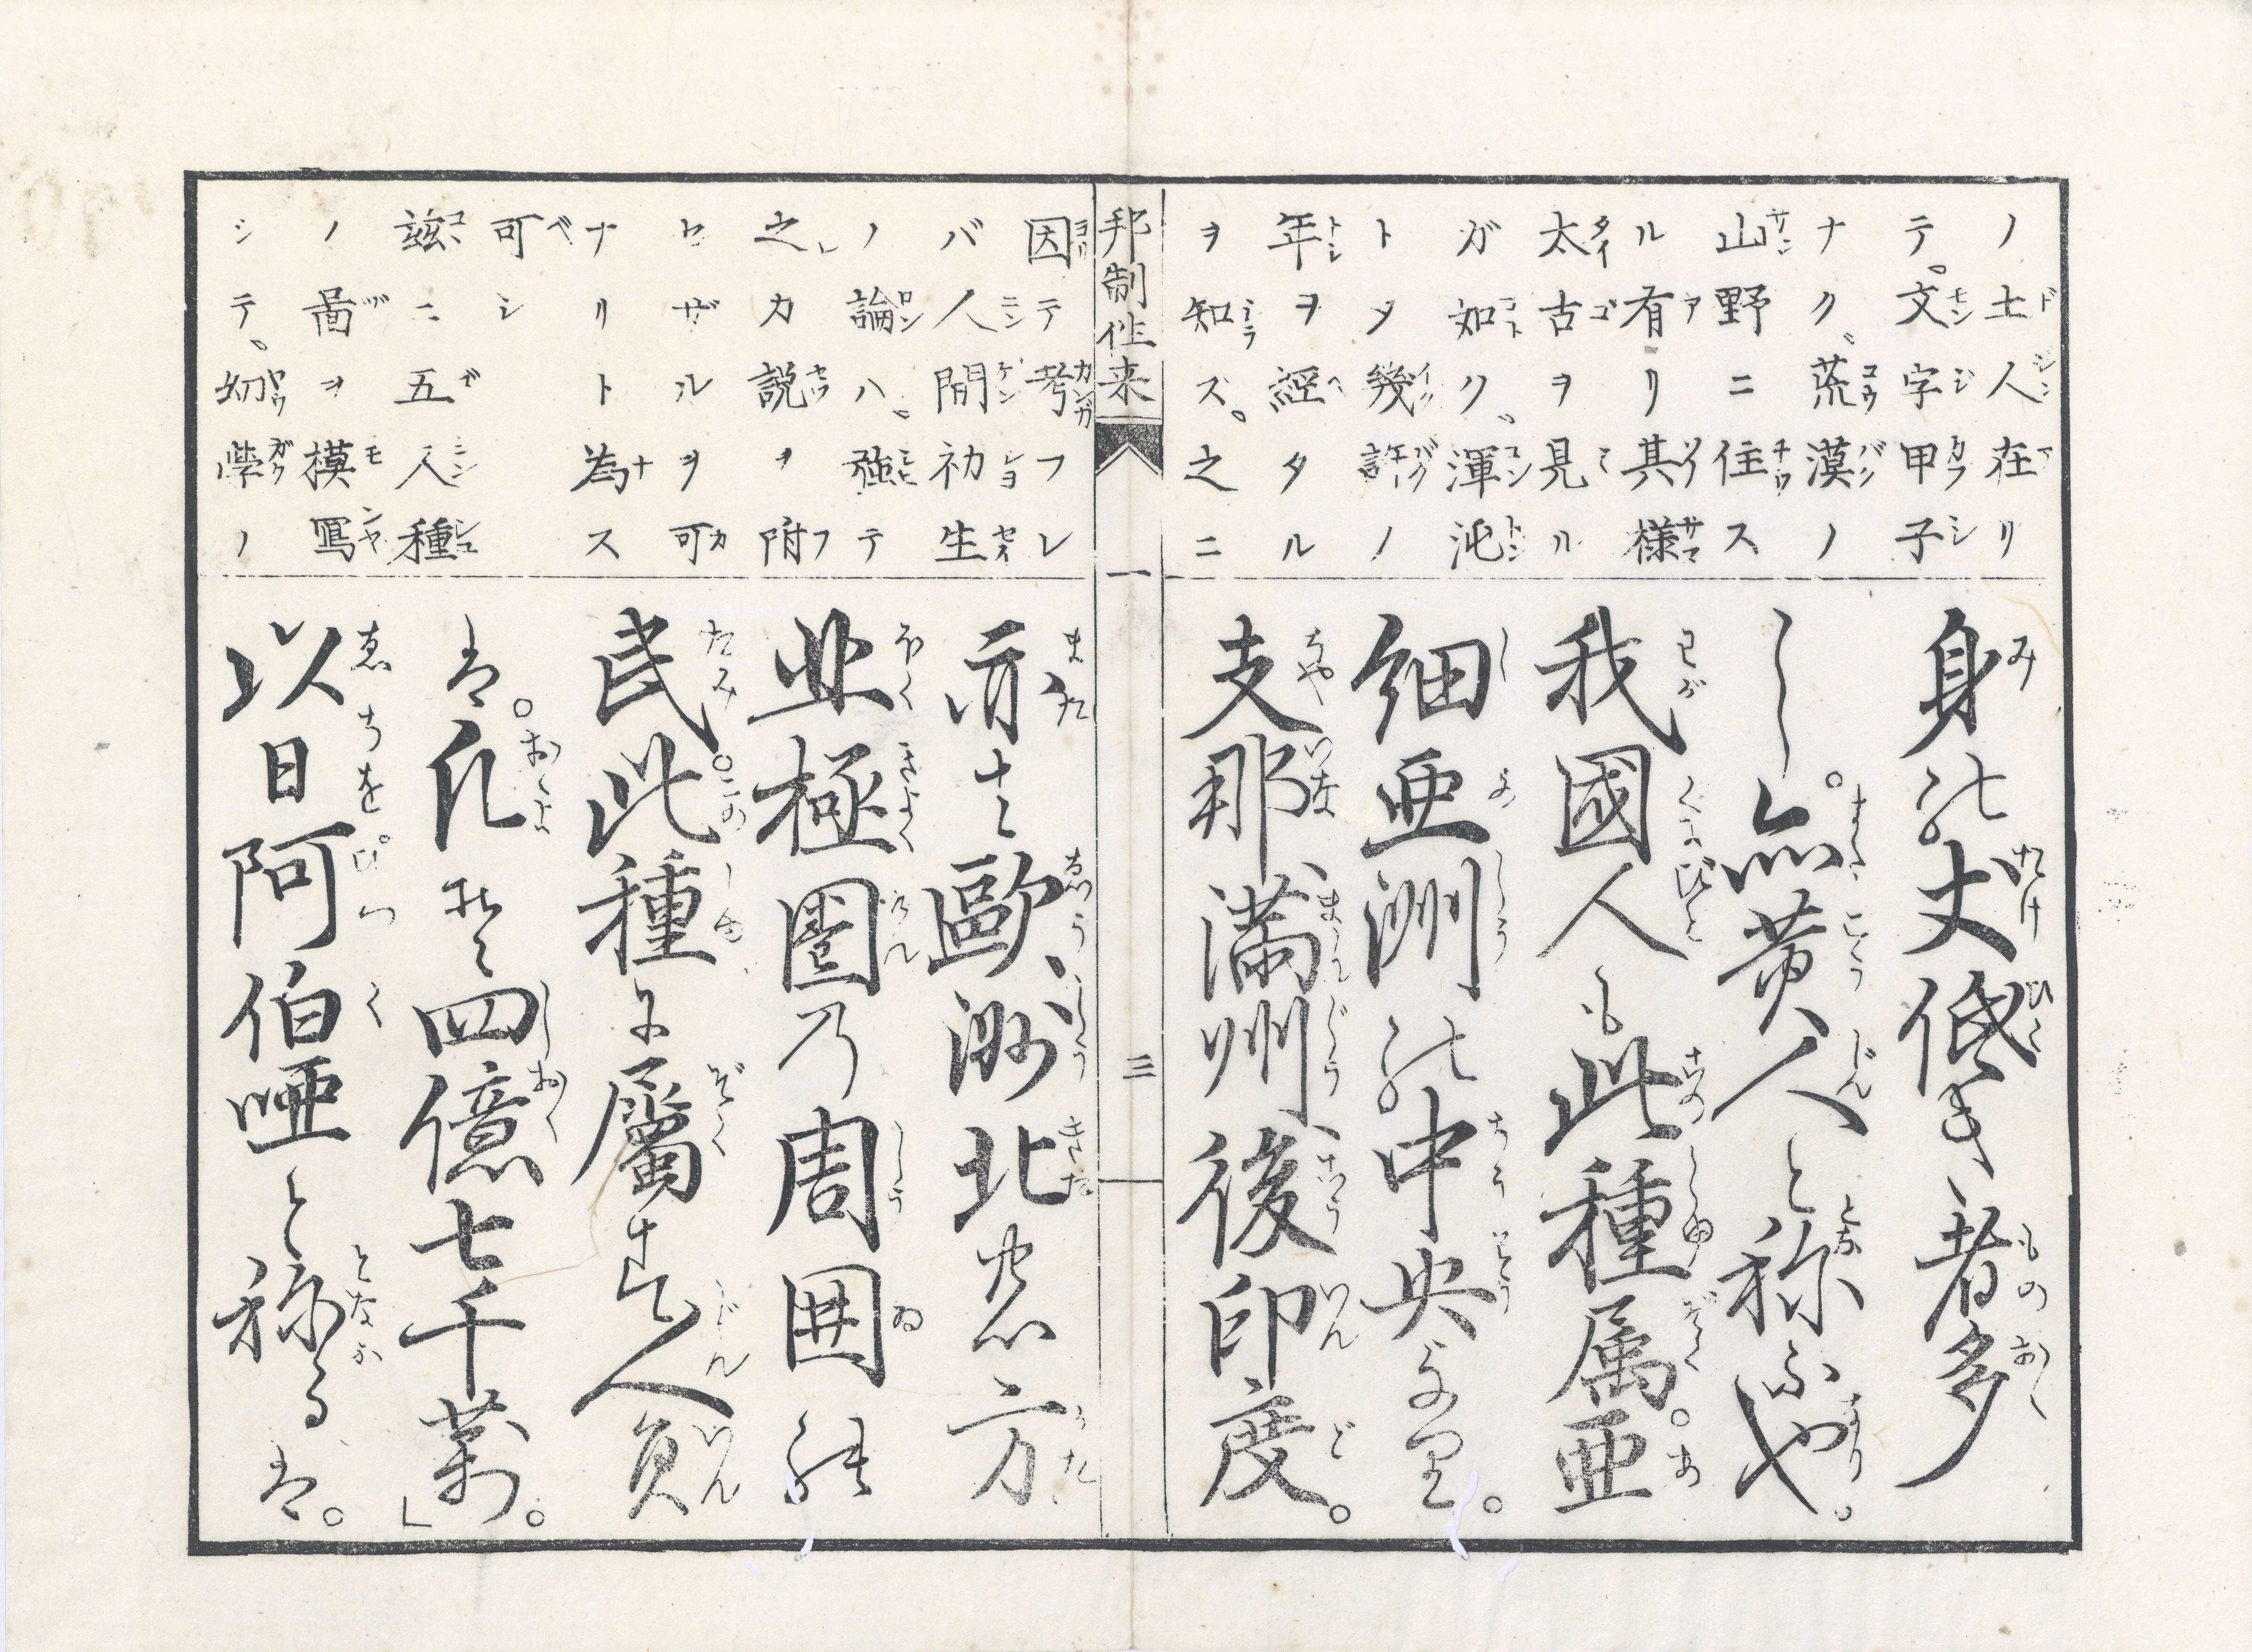 ノ土人在リ
テ。文字甲子
ナク、荒漠ノ
山野ニ住ス
ル有リ其様
太古ヲ見ル
ガ如ク、渾沌
トメ幾許ノ
年ヲ經タル
ヲ知ズ。之ニ
身の丈低き者多
し。点黄人と称ふや。
我國人も此種属。亜
細亜洲の中央より。
支那、満州、後印度。
邦制徃来
一
三
因テ考フレ
バ人間初生
ノ論ハ、強テ
之カ説ヲ附
セザルヲ可
ナリト為ス
可シ
茲ニ五人種
ノ啚ヲ模寫
シテ。幼學ノ
亦は歐洲北の方
北極圏乃周囲の
民。此種に屬す人員
は。凡そ四億七千萬。」
以日阿伯唖と称るは。